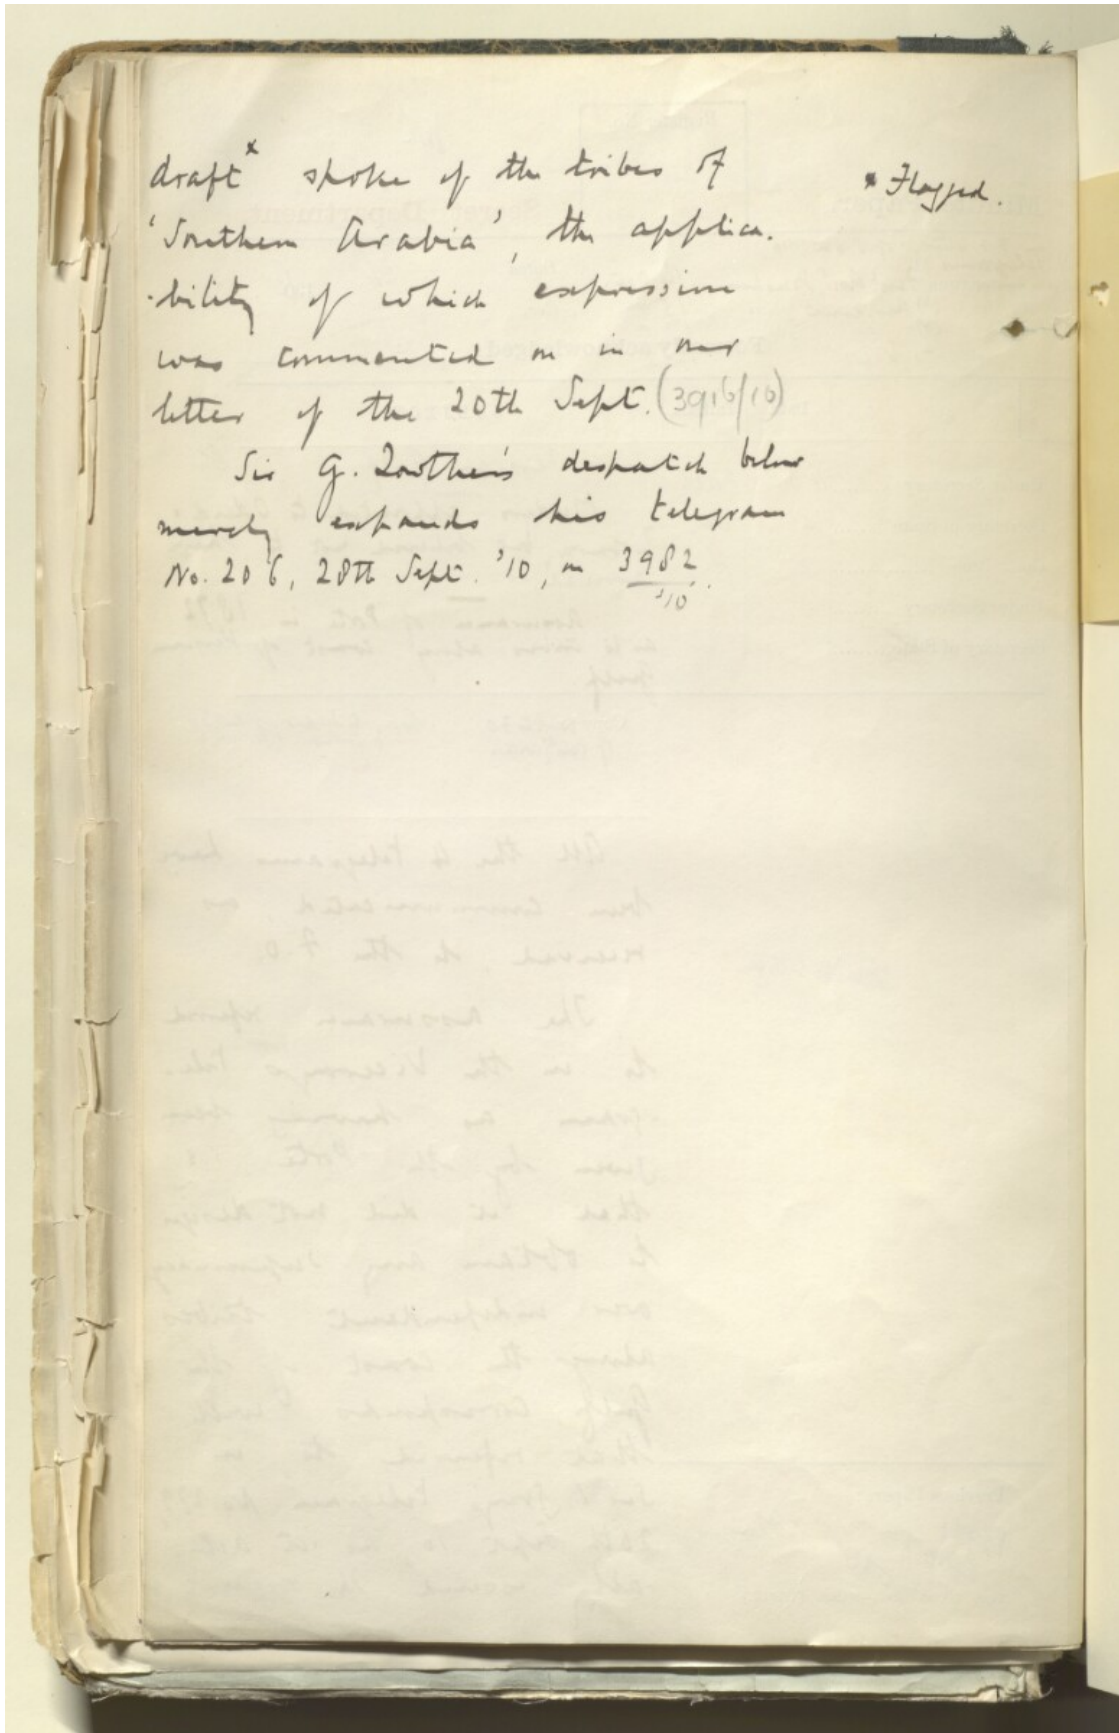 draft x spoke of the tribes of
x Flagged.
'Southern Arabia', the applica-
-bility of which expression
was commented on in our
letter of the 20th Sept. (3916/10)
Sir G. Lowther's despatch below
merely expands his telegram
No. 206, 28th Sept. '10, on 3982
'10